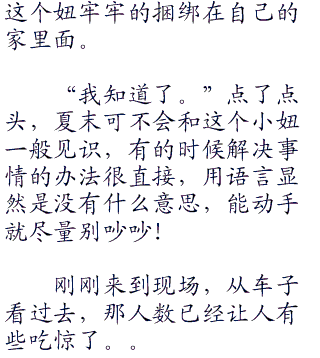 这个妞牢牢的捆绑在自己的
家里面。
“我知道了。”点了点
头，夏末可不会和这个小妞
一般见识，有的时候解决事
情的办法很直接，用语言显
然是没有什么意思，能动手
就尽量别吵吵！
刚刚来到现场，从车子
看过去，那人数已经让人有
些吃惊了。。